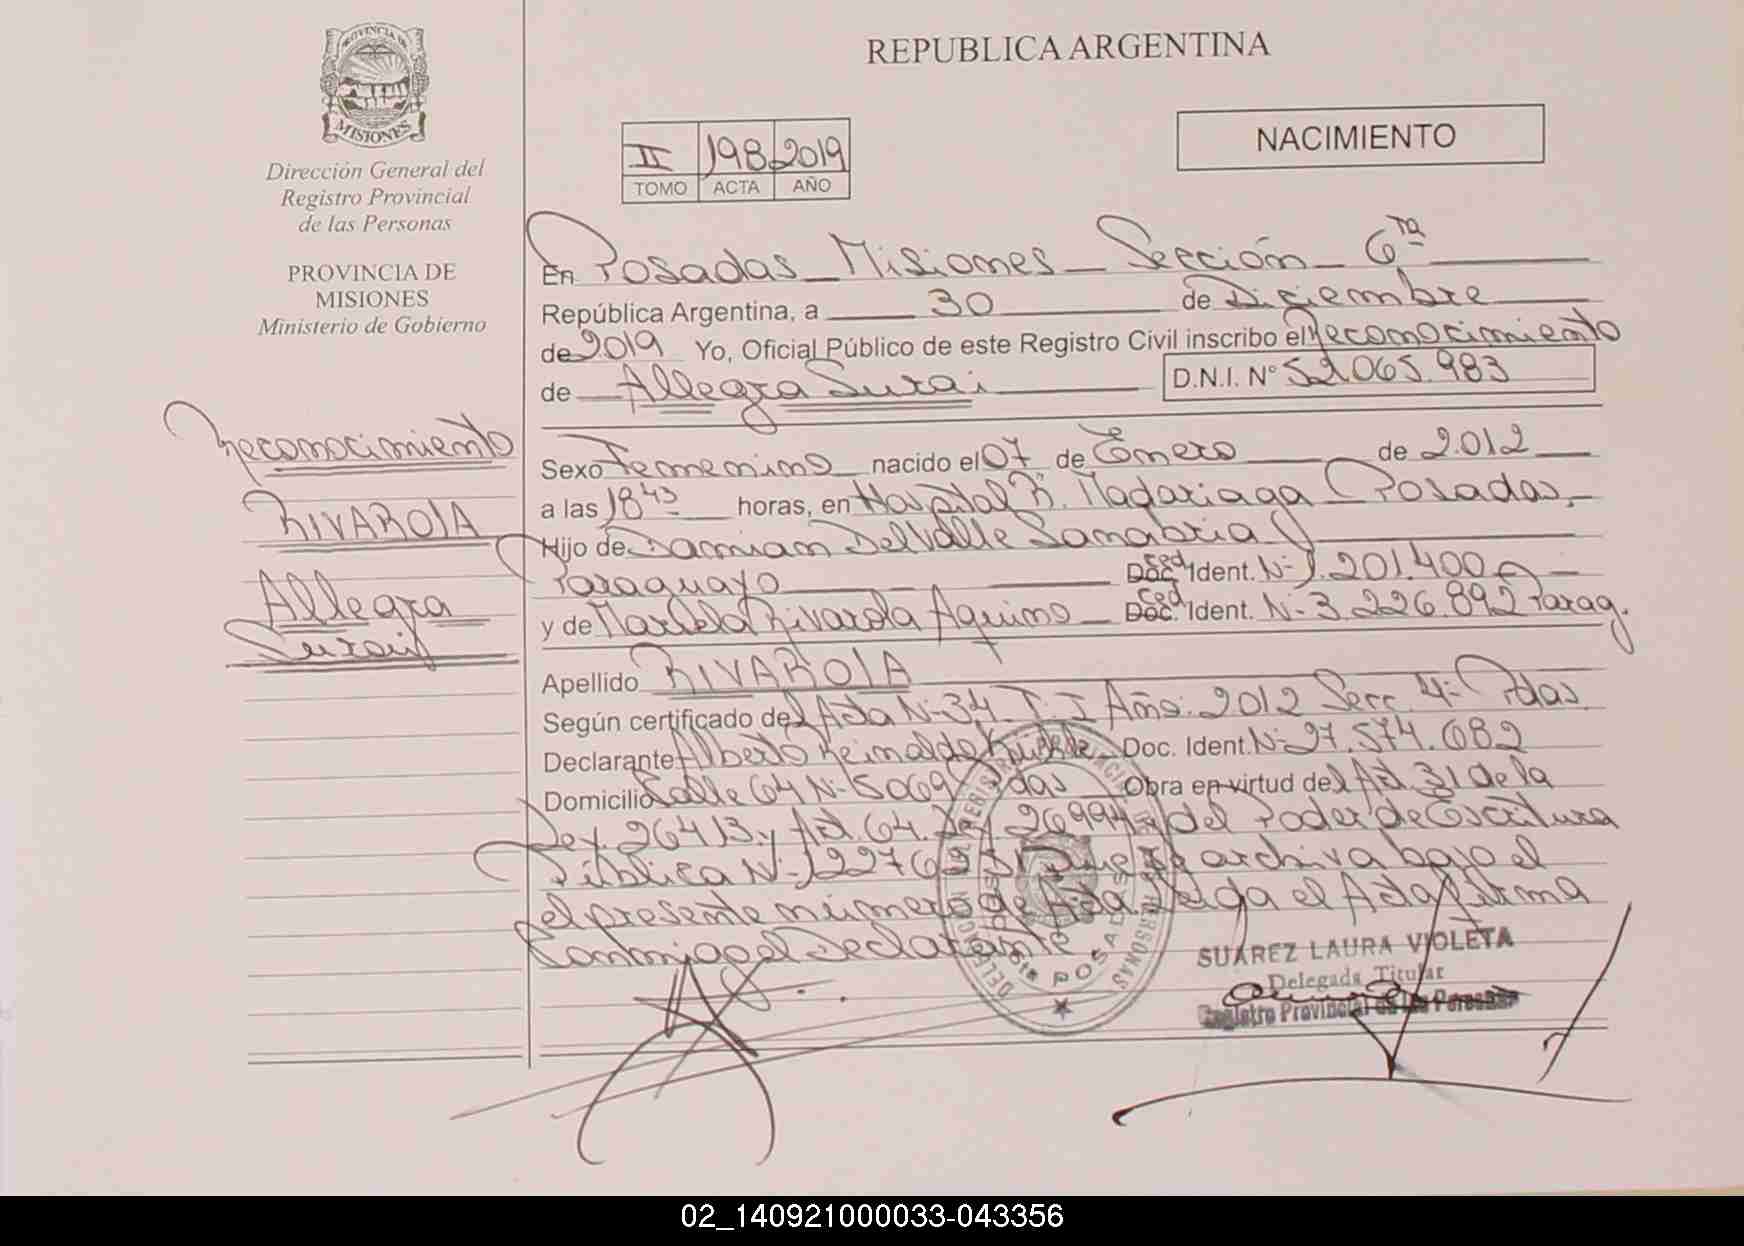 PROVINCIA DE
MISIONES
Dirección General del
Registro Provincial
de las Personas
PROVINCIA DE
MISIONES
Ministerio de Gobierno
Reconocimiento
RIVAROLA
Allegra
Surai
REPUBLICA ARGENTINA
NACIMIENTO
II 198 2019
TOMO ACTA AÑO
En Posadas Misiones Sección 6ta
República Argentina, a 30 de Diciembre
de 2019 Yo, Oficial Público de este Registro Civil inscribo el Reconocimiento
de Allegra Surai D.N.I. N° 52.065.983
Sexo Femenino nacido el 07 de Enero de 2012
a las 18 43 horas, en Hospital R. Madariaga Posadas.
Hijo de Damian Del Valle Sanabria
Paraguayo Doc. Ced Ident. N- 1.201.400
y de Mariela Rivarola Aquino Doc. Ced Ident. N- 3.226.892 Parag.
Apellido RIVAROLA
Según certificado del Acta N- 34 T. I Año: 2012 Secc. 4- Pdas.
Declarante Alberto Reinaldo Doc. Ident. N- 27.574.682
Domicilio Calle 64 N- 5069 Pdas Obra en virtud del Art. 31 de la
Ley. 26413 y Art. 64. Ley 26994 y del Poder de Escritura
Pública N- que se archiva bajo el
el presente número de Acta. Leida el Acta firma
Conmigo el Declarante
6ta POSADAS
SUAREZ LAURA VIOLETA
Delegada Titular
Registro Provincial de las Personas
02_140921000033-043356